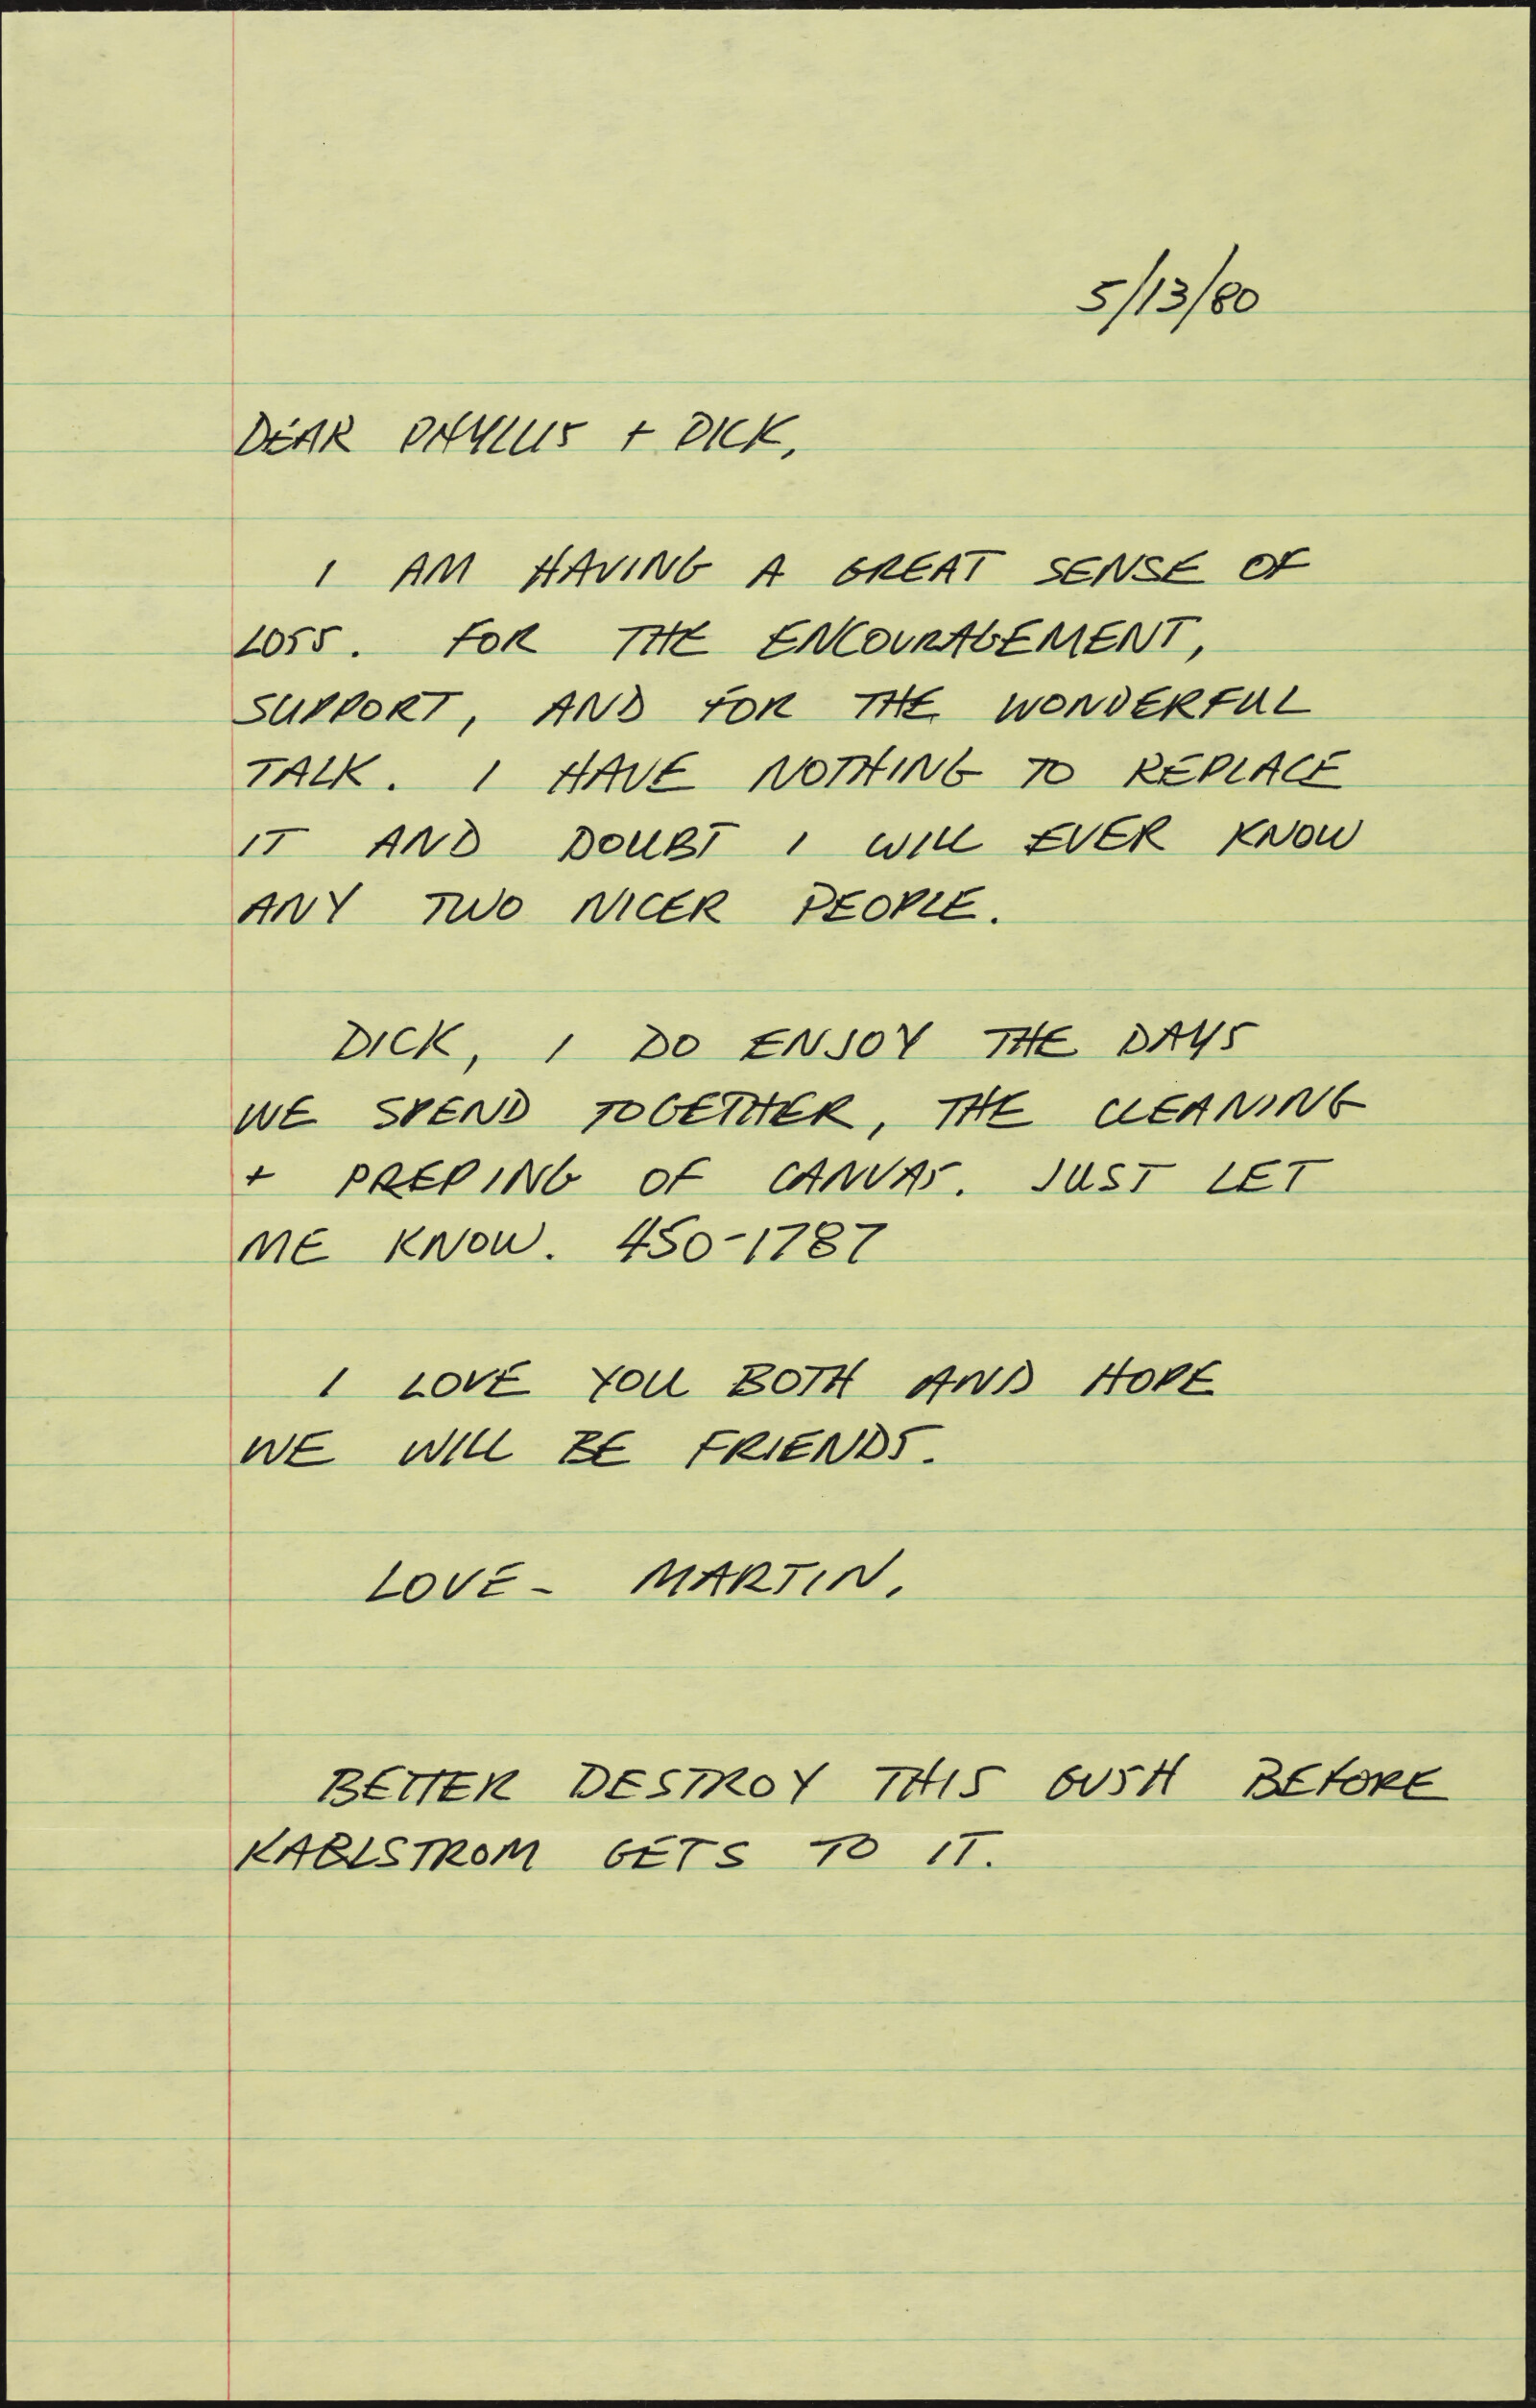 5/13/80
DEAR PHYLLIS + DICK,
I AM HAVING A GREAT SENSE OF
LOSS. FOR THE ENCOURAGEMENT,
SUPPORT, AND FOR THE WONDERFUL
TALK. I HAVE NOTHING TO REPLACE
IT AND DOUBT I WILL EVER KNOW
ANY TWO NICER PEOPLE.
DICK, I DO ENJOY THE DAYS
WE SPEND TOGETHER, THE CLEANING
+ PREPING OF CANVAS. JUST LET
ME KNOW. 450-1787
I LOVE YOU BOTH AND HOPE
WE WILL BE FRIENDS.
LOVE - MARTIN.
BETTER DESTROY THIS GUSH BEFORE
KARLSTROM GETS TO IT.